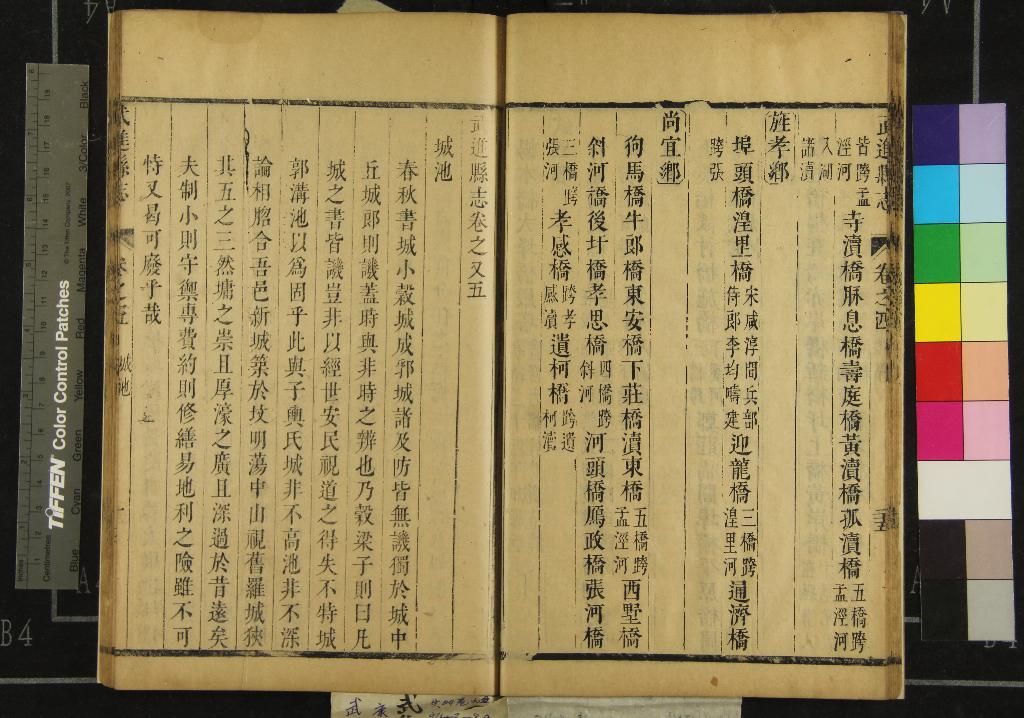 武進縣志 卷之四
皆跨孟涇河又湖諸瀆
寺瀆橋脉息橋壽庭橋黃瀆橋孤瀆橋五橋跨孟涇河
旌孝鄉
埠頭橋湟里橋宋咸淳間兵部侍郎李均疇建迎龍橋三橋跨湟里河通濟橋
跨張
尚宜鄉
狗馬橋牛郎橋東安橋下莊橋瀆東橋五橋跨孟涇河西墅橋
斜河橋後圩橋孝思橋四橋跨斜河河頭橋馬政橋張河橋
三橋跨張河孝感橋跨孝感瀆遺柯橋跨遺柯瀆
武進縣志卷之又五
城池
春秋書城小穀城成郛城諸及防皆無譏獨於城中
丘城郎則譏蓋時與非時之辨也乃穀梁子則曰凡
城之書皆譏豈非以經世安民視道之得失不特城
郭溝池以爲固乎此與子輿氏城非不高池非不深
論相脗合吾邑新城築於坟明蕩中山視舊羅城狹
其五之三然墉之崇且厚濠之廣且深過於昔遠矣
夫制小則守禦專費約則修繕易地利之險雖不可
恃又曷可廢乎哉
武進縣志 卷之五 城池
TIFFEN Color Control Patches
© The Tiffen Company, 2007
Inches
Centimetres
Blue
Cyan
Green
Yellow
Red
Magenta
White
3/Color
Black
B4
A4